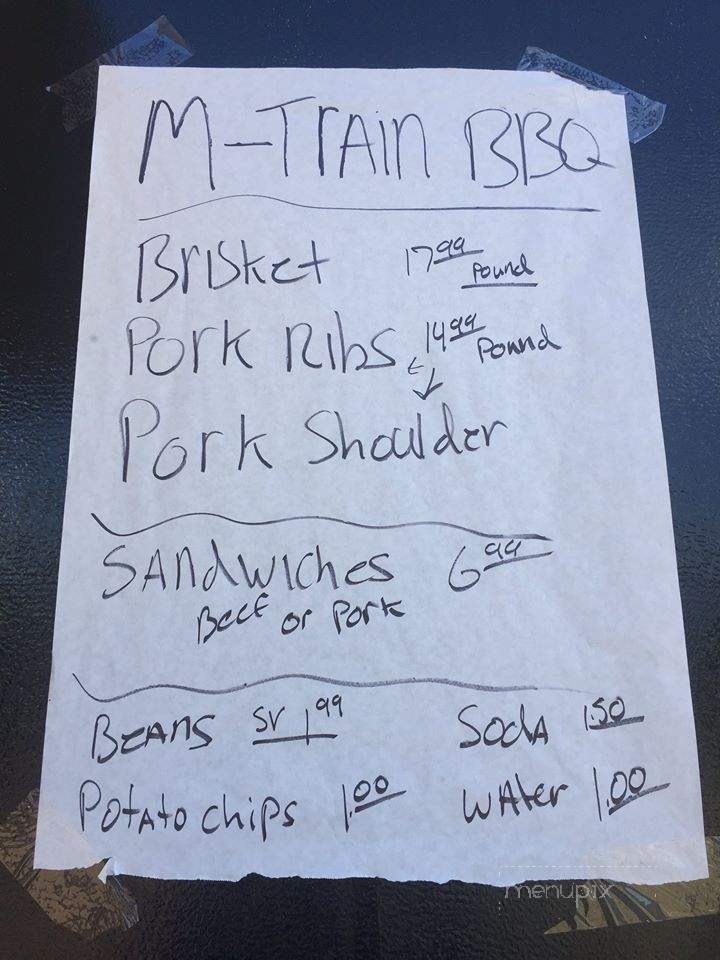 M-Train BBQ
Brisket 17.99 Pound
Pork Ribs 14.99 Pound
Pork Shoulder
Sandwiches 6.99
Beef or Pork
Beans SV 1.99 Soda 1.50
Potato chips 1.00 Water 1.00
menupix